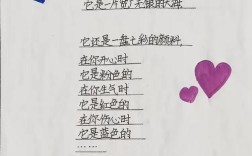 它是一片宽广无银的大海
它还是一盘七彩的颜料
在你开心时
它是粉色的
在你生气时
它是红色的
在你伤心时
它是蓝色的
……